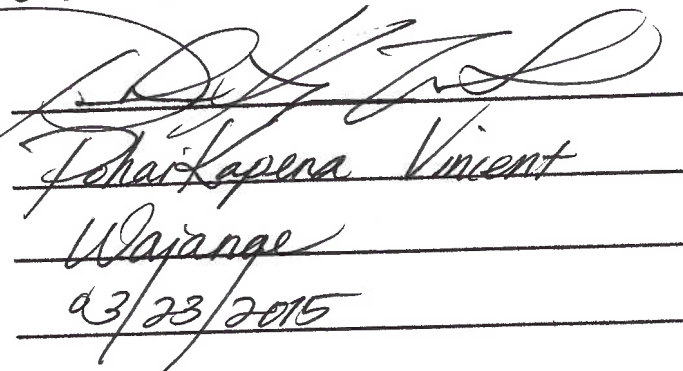 PohaiKapena Vincent
Waianae
03/23/2015